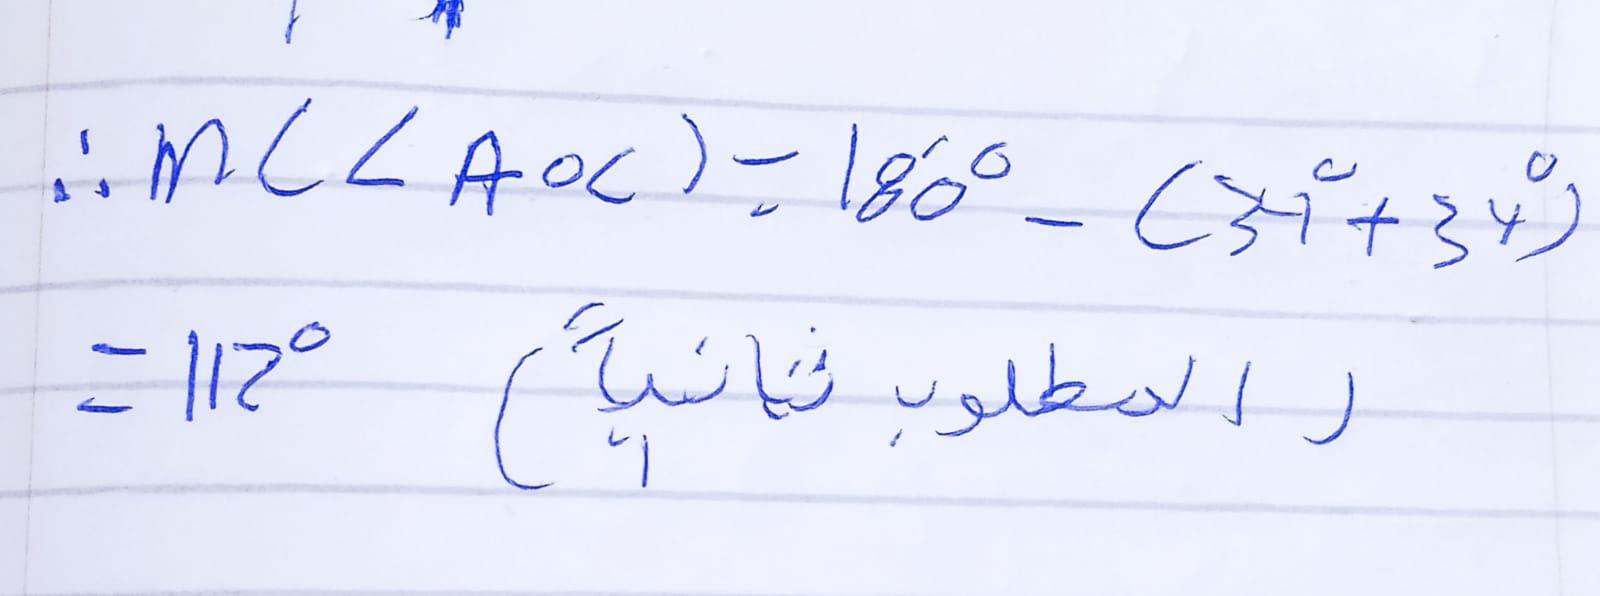 ∴ m(∠AOC) = 180° - (34° + 34°)
= 112° (المطلوب ثانياً)